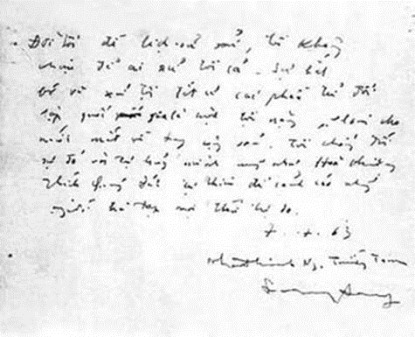 Đời tôi để lịch-sử xử, tôi không
chịu để ai xử tôi cả. Sự bắt
bớ và xử tội tất cả các phần tử đối
lập quốc gia là một tội nặng sẽ làm cho
nước mất về tay cộng sản. Tôi chống đối
sự đó và tự huỷ mình cũng như Hoà thượng
Thích Quảng Đức tự thiêu để cảnh cáo những
người chà đạp mọi thứ tự do.
7-7-63
Nhất Linh Ng. Tường Tam